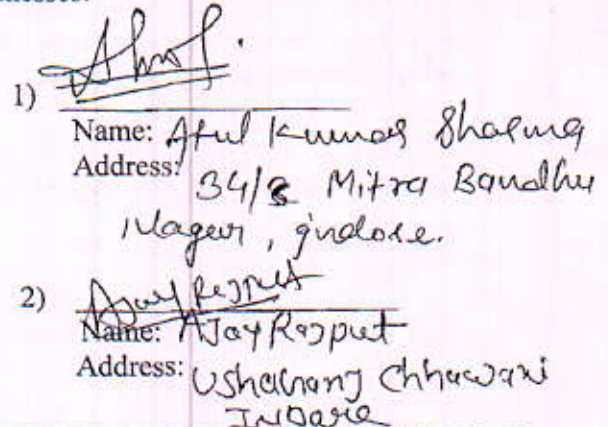 1)
Name: Atul Kumar Sharma
Address: 34/3 Mitra Bandhu
Nagar, Indore.
2) Ajay Rajput
Name: Ajay Rajput
Address: Ushaganj Chhawani
Indore